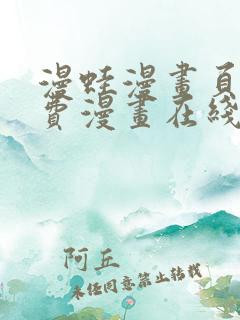 漫蛙漫畫頁
費漫畫在綫
阿丘
未经同意禁止转载